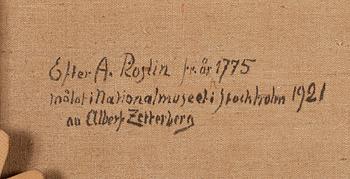 Efter A. Roslin fr. år 1775
målat i Nationalmuseet i Stockholm 1921
av Albert Zetterberg